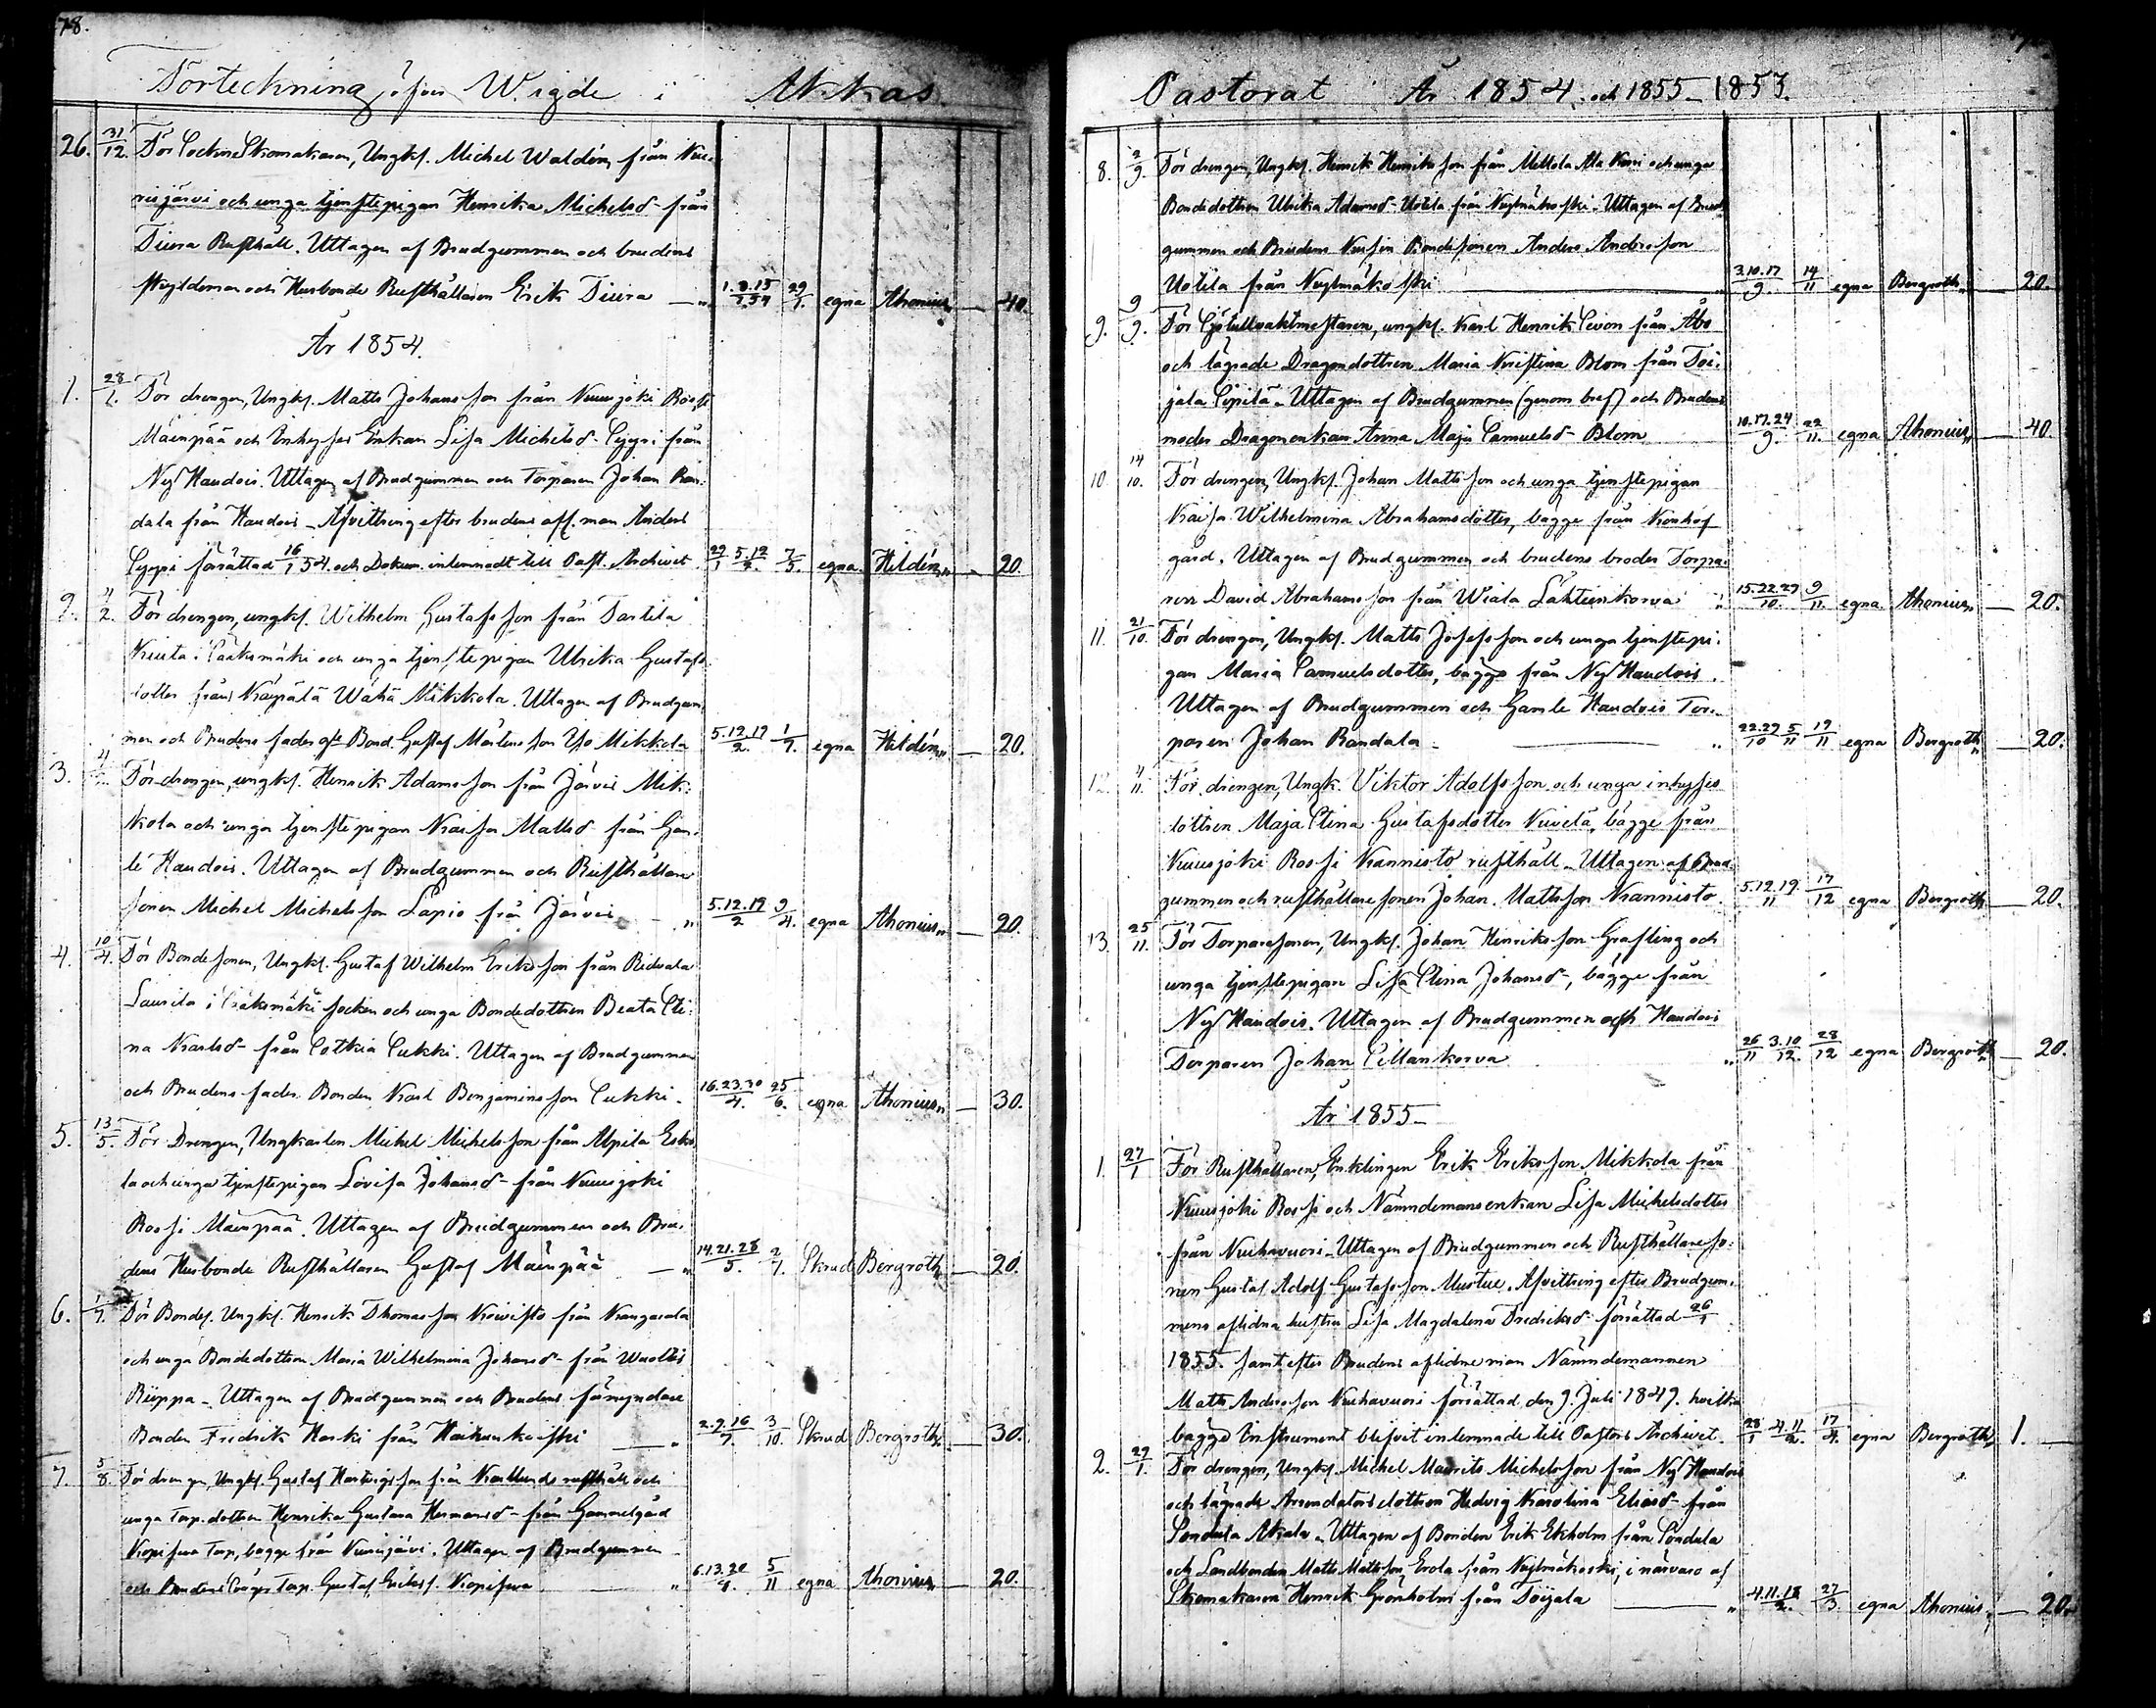 78.
Förteckning öfver Wigde i Akkas
26. 31/12. För Sockne Skomakaren, Ungk. Michel Waldén från Kuu-
risjärvi och unga tjenstepigan Henrika Michelsd- från
Tiura Rusthåll. Uttagen af Brudgummen och brudens
Husbonde Rusthållaren Erik Tiura 1.8.15/1.54 29/1. egna Ahonius 40.
År 1854.
1. 28/1. För drengen, Ungk. Matts Johansson från Kuusjoki Rossi
Mäenpää och Inhyses Enkan Lisa Michelsd- Lyyri från
Ny Haudois. Uttagen af Brudgummen och Torparen Johan Ran-
dala från Haudois - Afvittring efter brudens afl. man Anders
Lyyri förrättad 16/1 54. och Dokum. inlemnadt till Past. Archivet. 29/1 5.12/2. 7/5. egna Hildén 20.
2. 4/2. För drengen, ungk. Wilhelm Gustafsson från Tarttila
i Sääksmäki och unga tjenstepigan Ulrika Gustafs-
dotter från Kärpälä Wähä Mikkola. Uttagen af Brudgum-
men och Brudens fader Bond. Gustaf Mårtensson Yso Mikkola 5.12.19/2. 1/7. egna Hildén 20.
3. För drengen, ungk. Henrik Adamsson från Järvis Mik-
kola och unga tjenstepigan Kaisa Mattsd- från Gam-
le Haudois. Uttagen af Brudgummen och Rusthållare
sonen Michel Michelsson Lapio från Järvis 5.12.19/2 9/4. egna Ahonius 20.
4. 10/4. För Bondesonen, Ungk. Gustaf Wilhelm Eriksson från Ridvala
Laurila i Sääksmäki socken och unga Bondedottren Beata Sti-
na Karlsd- från Sottkia Sukki. Uttagen af Brudgummen
och Brudens fader Bonden Karl Benjaminsson Sukki. 16.23.30/4. 25/6. egna Ahonius 30.
5. 13/5. För Drengen, Ungkarlen Michel Michelsson från Alpila Esko-
la och unga tjenstepigan Lovisa Johansd- från Kuusjoki
Rossi Mäenpää. Uttagen af Brudgummen och Bru-
dens Husbonde Rusthållaren Gustaf Mäenpää 14.21.28/5. 2/7. Skrud Bergroth 20.
6. 1/7. För Bondes. Ungk. Henrik Thomasson Koivisto från Kangasala
och unga Bondedottren Maria Wilhelmina Johansd- från Wuoltis
Riippa - Uttagen af Brudgummen och Brudens förmyndare
Bonden Fredrik Harki från Kaikunkoiski 2.9.16/7. 3/10. Skrud Bergroth 30.
7. 5/8. För drengen, Ungk. Gustaf Hartvigsson från Karllunds rusthåll och
unga Torp. dottren Henrika Gustava Hermansd- från Gammelgård
Kopisuva Torp, bägge från Kuurijärvi. Uttagen af Brudgummen
och Brudens Torp. Gustaf Erikss. Kopisuva 6.13.20/8. 5/11 egna Ahonius 20.
Pastorat År 1854. och 1855- 1853.
8. 2/9. För drengen, Ungk. Henrik Henriksson från Mellola Ala Knuri och unga
Bondedottren Ulrika Adamsd- Uotila från Nuylmäkoski. Uttagen af Brud-
gummen och Brudens Kusin Bondesonen Anders Andersson
Uotila från Nuylmäkoski 3.10.17/9. 14/11 egna Bergroth 20.
9. 9/9. För Sjötullvaktmestaren, ungk. Karl Henrik Sevon från Åbo
och lägrade Dragondottren Maria Kristina Blom från Toi-
jala Sipilä - Uttagen af Brudgummen (genom bref) och Brudens
moder Dragonenkan Anna Maja Samuelsd- Blom 10.17.24/9. 22/11. egna Ahonius 40.
10. 14/10. För drengen, Ungk. Johan Mattsson och unga tjenstepigan
Kaisa Wilhelmina Abrahamsdotter, bägge från Konhof
gård. Uttagen af Brudgummen och brudens broder Torpa-
ren David Abrahamsson från Wiala Lahteenkorva 15.22.29/10. 9/11. egna Ahonius 20.
11. 21/10. För drengen, Ungk. Matts Josefsson och unga tjenstepi-
gan Maria Samuelsdotter, bägge från Ny Haudois.
Uttagen af Brudgummen och Gamle Haudois Tor-
paren Johan Randala - 22.29/10 5/11 19/11 egna Bergroth 20.
12. 4/11. För drengen, Ungk. Viktor Adolfsson och unga inhyses
dottren Maja Stina Gustafsdotter Kuivelä, bägge från
Kuusjoki Rossi Kannisto rusthåll - Uttagen af Brud-
gummen och rusthållaresonen Johan Mattsson Kannisto. 5.12.19./11 17/12 egna Bergroth 20.
13. 25/11. För Torparesonen, Ungk. Johan Henriksson Grafling och
unga tjenstepigan Lisa Stina Johansd-, bägge från
Ny Haudois. Uttagen af Brudgummen och Haudois
Torparen Johan Sillankorva 26/11 3.10/12. 28/12 egna Bergroth 20.
År 1855-
1. 27/1 För Rusthållaren, Enklingen Erik Eriksson Mikkola från
Kuusjoki Rossi och Nämndemansenkan Lisa Michelsdotter
från Kuehavuori - Uttagen af Brudgummen och Rusthållareso-
nen Gustaf Adolf Gustafsson Mustue. Afvittring efter Brudgum-
mens aflidna hustru Lisa Magdalena Fredriksd- förrättad 26/1
1855. samt efter Brudens aflidne man Nämndemannen
Matts Andersson Kuehavuori förrättad den 9. Juli 1849. hvilka
bägge Instrument blifvit inlemnade till Pastors Archivet. 28/1 4.11/2. 17/4. egna Bergroth 1.
2. 29/1. För drengen, Ungk. Michel Maurits Michelsson från Ny Haudois
och lägrade Arrendatorsdottren Hedvig Karolina Eliasd- från
Sondula Akala - Uttagen af Bonden Erik Ekholm från Sondula
och Landbonden Matts Mattsson Erola från Nuylmäkoski, i närvaro af
Skomakaren Henrik Grönholm från Toijala 4.11.18/2. 27/3. egna Ahonius 20.